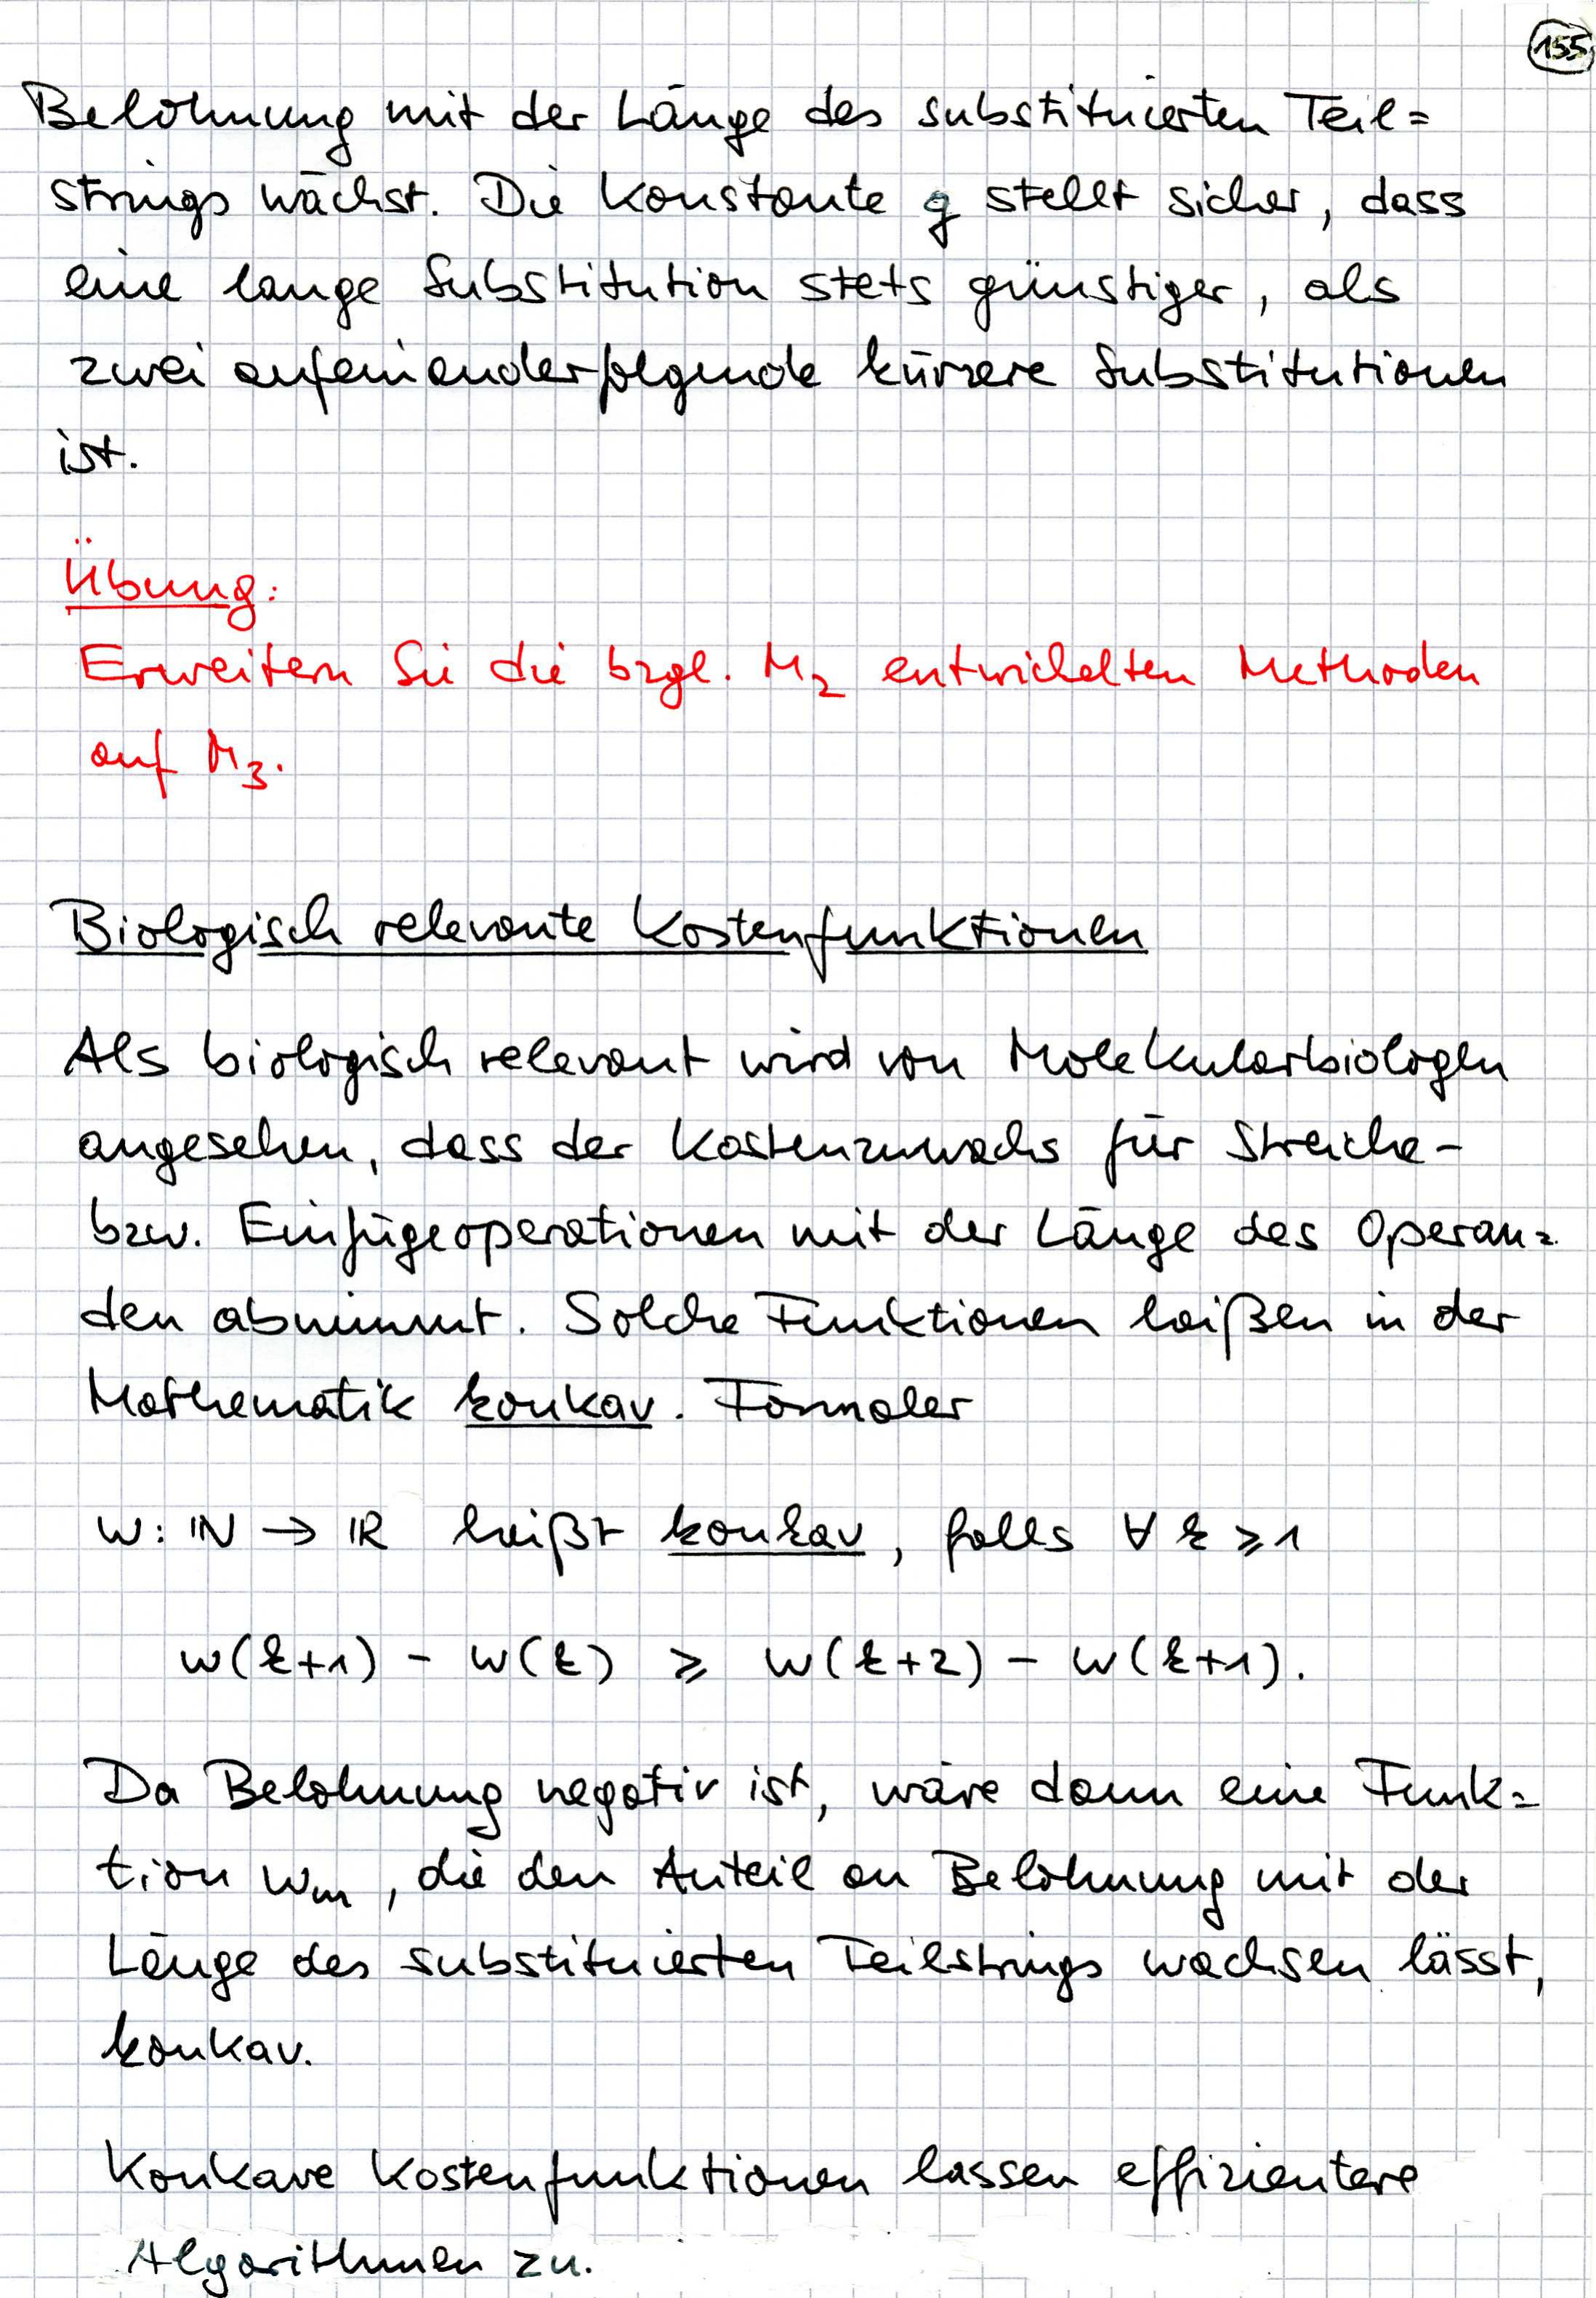 155
Belohnung mit der Länge des substituierten Teil=
strings wächst. Die Konstante g stellt sicher, dass
eine lange Substitution stets günstiger, als
zwei aufeinanderfolgende kürzere Substitutionen
ist.
Übung:
Erweitern Sie die bzgl. M₂ entwickelten Methoden
auf M₃.
Biologisch relevante Kostenfunktionen
Als biologisch relevant wird von Molekularbiologen
angesehen, dass der Kostenzuwachs für Streiche-
bzw. Einfügeoperationen mit der Länge des Operan=
den abnimmt. Solche Funktionen heißen in der
Mathematik konkav. Formaler
w: ℕ → ℝ heißt konkav, falls ∀ k ⩾ 1
w(k+1) - w(k) ⩾ w(k+2) - w(k+1).
Da Belohnung negativ ist, wäre dann eine Funk=
tion wₘ, die den Anteil an Belohnung mit der
Länge des substituierten Teilstrings wachsen lässt,
konkav.
Konkave Kostenfunktionen lassen effizientere
Algorithmen zu.